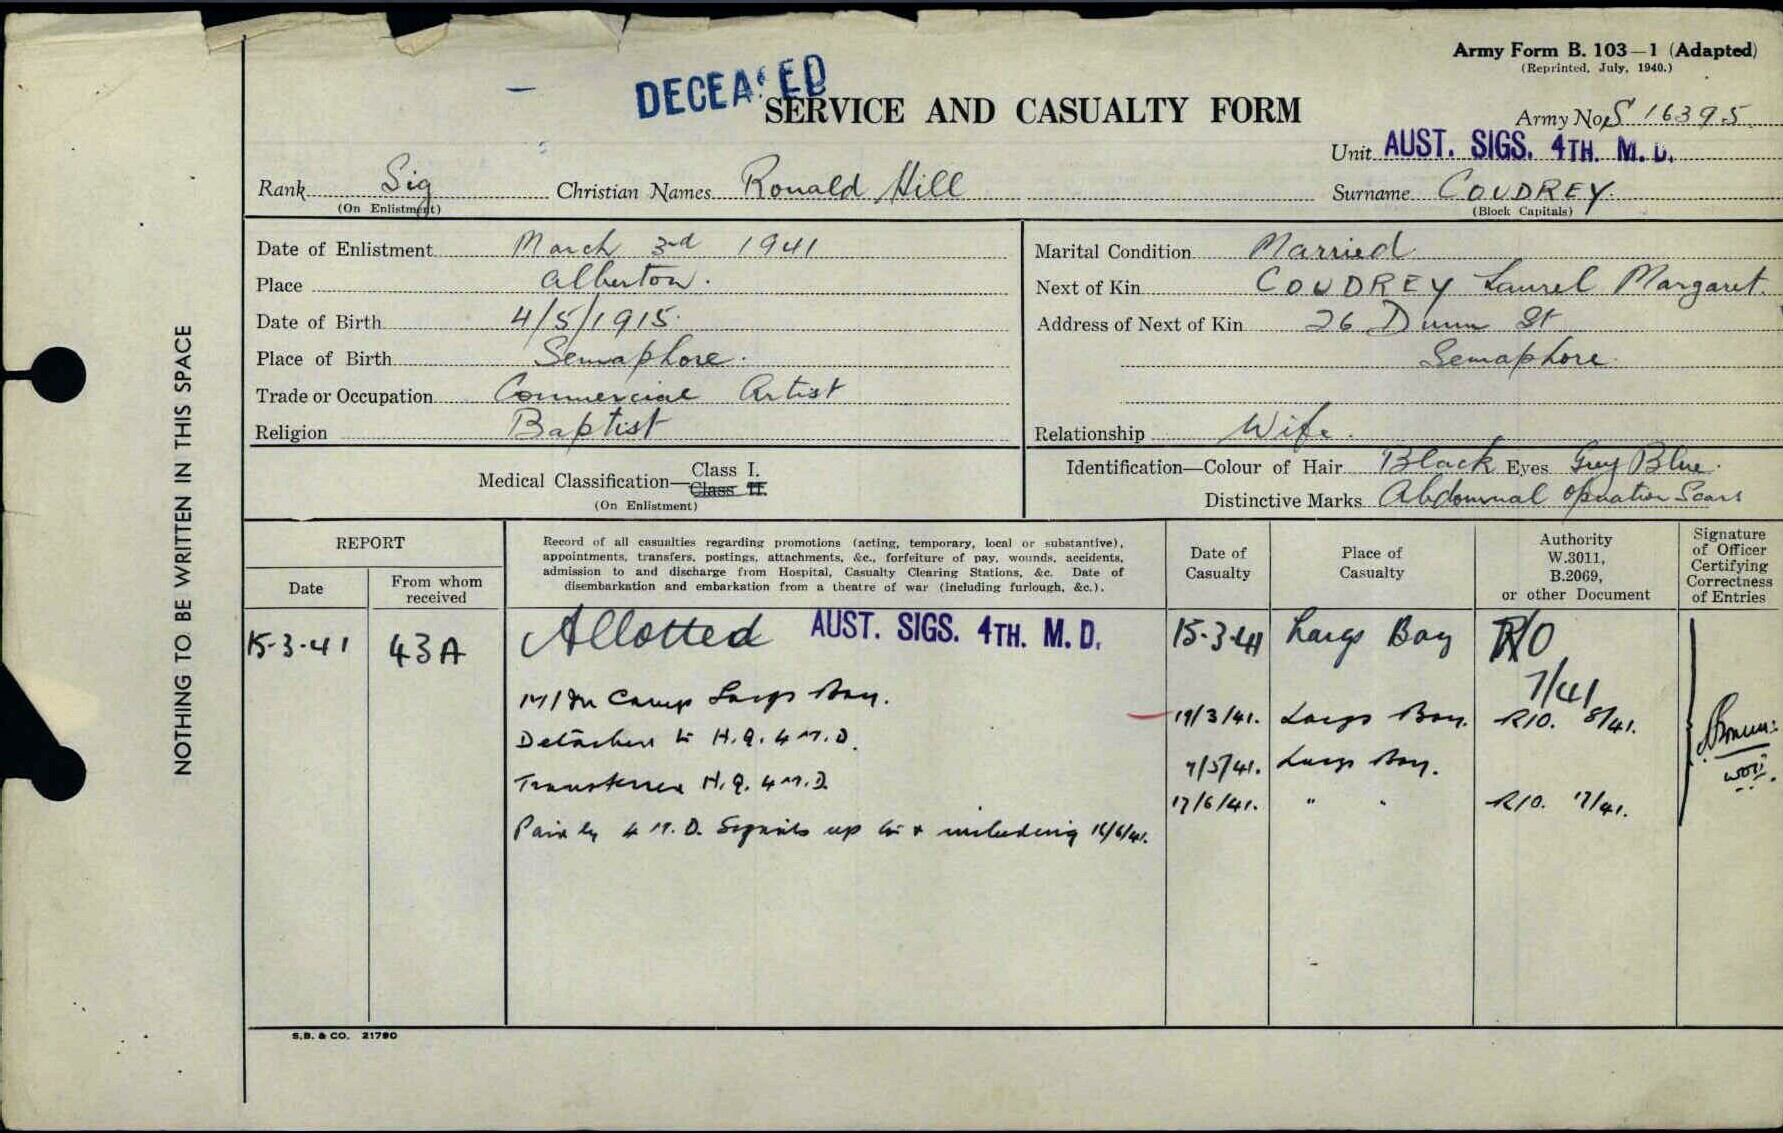 Army Form B. 103—1 (Adapted)
(Reprinted, July, 1940.)
DECEASED
SERVICE AND CASUALTY FORM
Army No. S 16395
Unit AUST. SIGS. 4TH. M. D.
Rank Sig Christian Names Ronald Hill Surname COUDREY.
(On Enlistment) (Block Capitals)
Date of Enlistment March 3rd 1941
Place Alberton.
Date of Birth 4/5/1915.
Place of Birth Semaphore.
Trade or Occupation Commercial Artist
Religion Baptist
Marital Condition Married
Next of Kin COUDREY Laurel Margaret.
Address of Next of Kin 26 Dunn St
Semaphore.
Relationship Wife.
Medical Classification— Class I.
Class II.
(On Enlistment)
Identification—Colour of Hair Black Eyes Grey Blue.
Distinctive Marks Abdominal Operation Scars
REPORT
Date
From whom received
Record of all casualties regarding promotions (acting, temporary, local or substantive),
appointments, transfers, postings, attachments, &c., forfeiture of pay, wounds, accidents,
admission to and discharge from Hospital, Casualty Clearing Stations, &c. Date of
disembarkation and embarkation from a theatre of war (including furlough, &c.).
Date of Casualty
Place of Casualty
Authority
W.3011,
B.2069,
or other Document
Signature
of Officer
Certifying
Correctness
of Entries
15-3-41 43A Allotted AUST. SIGS. 4TH. M. D. 15-3-41 Largs Bay R/O
7/41
M/In Camp Largs Bay. 19/3/41. Largs Bay. R/O. 8/41.
Detached to H.Q. 4 M.D. 7/5/41. Largs Bay.
Transferred H.Q. 4 M.D. 17/6/41. " " R/O. 17/41.
Paid by 4 M.D. Signals up to & including 16/6/41.
S.B. & CO. 21790
NOTHING TO BE WRITTEN IN THIS SPACE